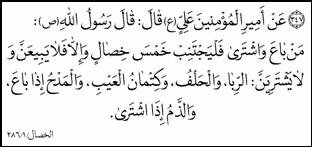 ﴿٣٤٧﴾ عَنْ أَمِيرِ الْمُؤْمِنِينَ عَلِيٍّ(ع) قَالَ: قَالَ رَسُولُ اللّٰهِ(ص):
مَنْ بَاعَ وَاشْتَرَىٰ فَلْيَجْتَنِبْ خَمْسَ خِصَالٍ وَإِلَّا فَلَا يَبِيعَنَّ وَ
لَا يَشْتَرِيَنَّ: الرِّبَا، وَالْحَلْفُ، وَكِتْمَانُ الْعَيْبِ، وَالْمَدْحُ إِذَا بَاعَ،
وَالذَّمُّ إِذَا اشْتَرَىٰ.
الخصال: ٢٨٦/١